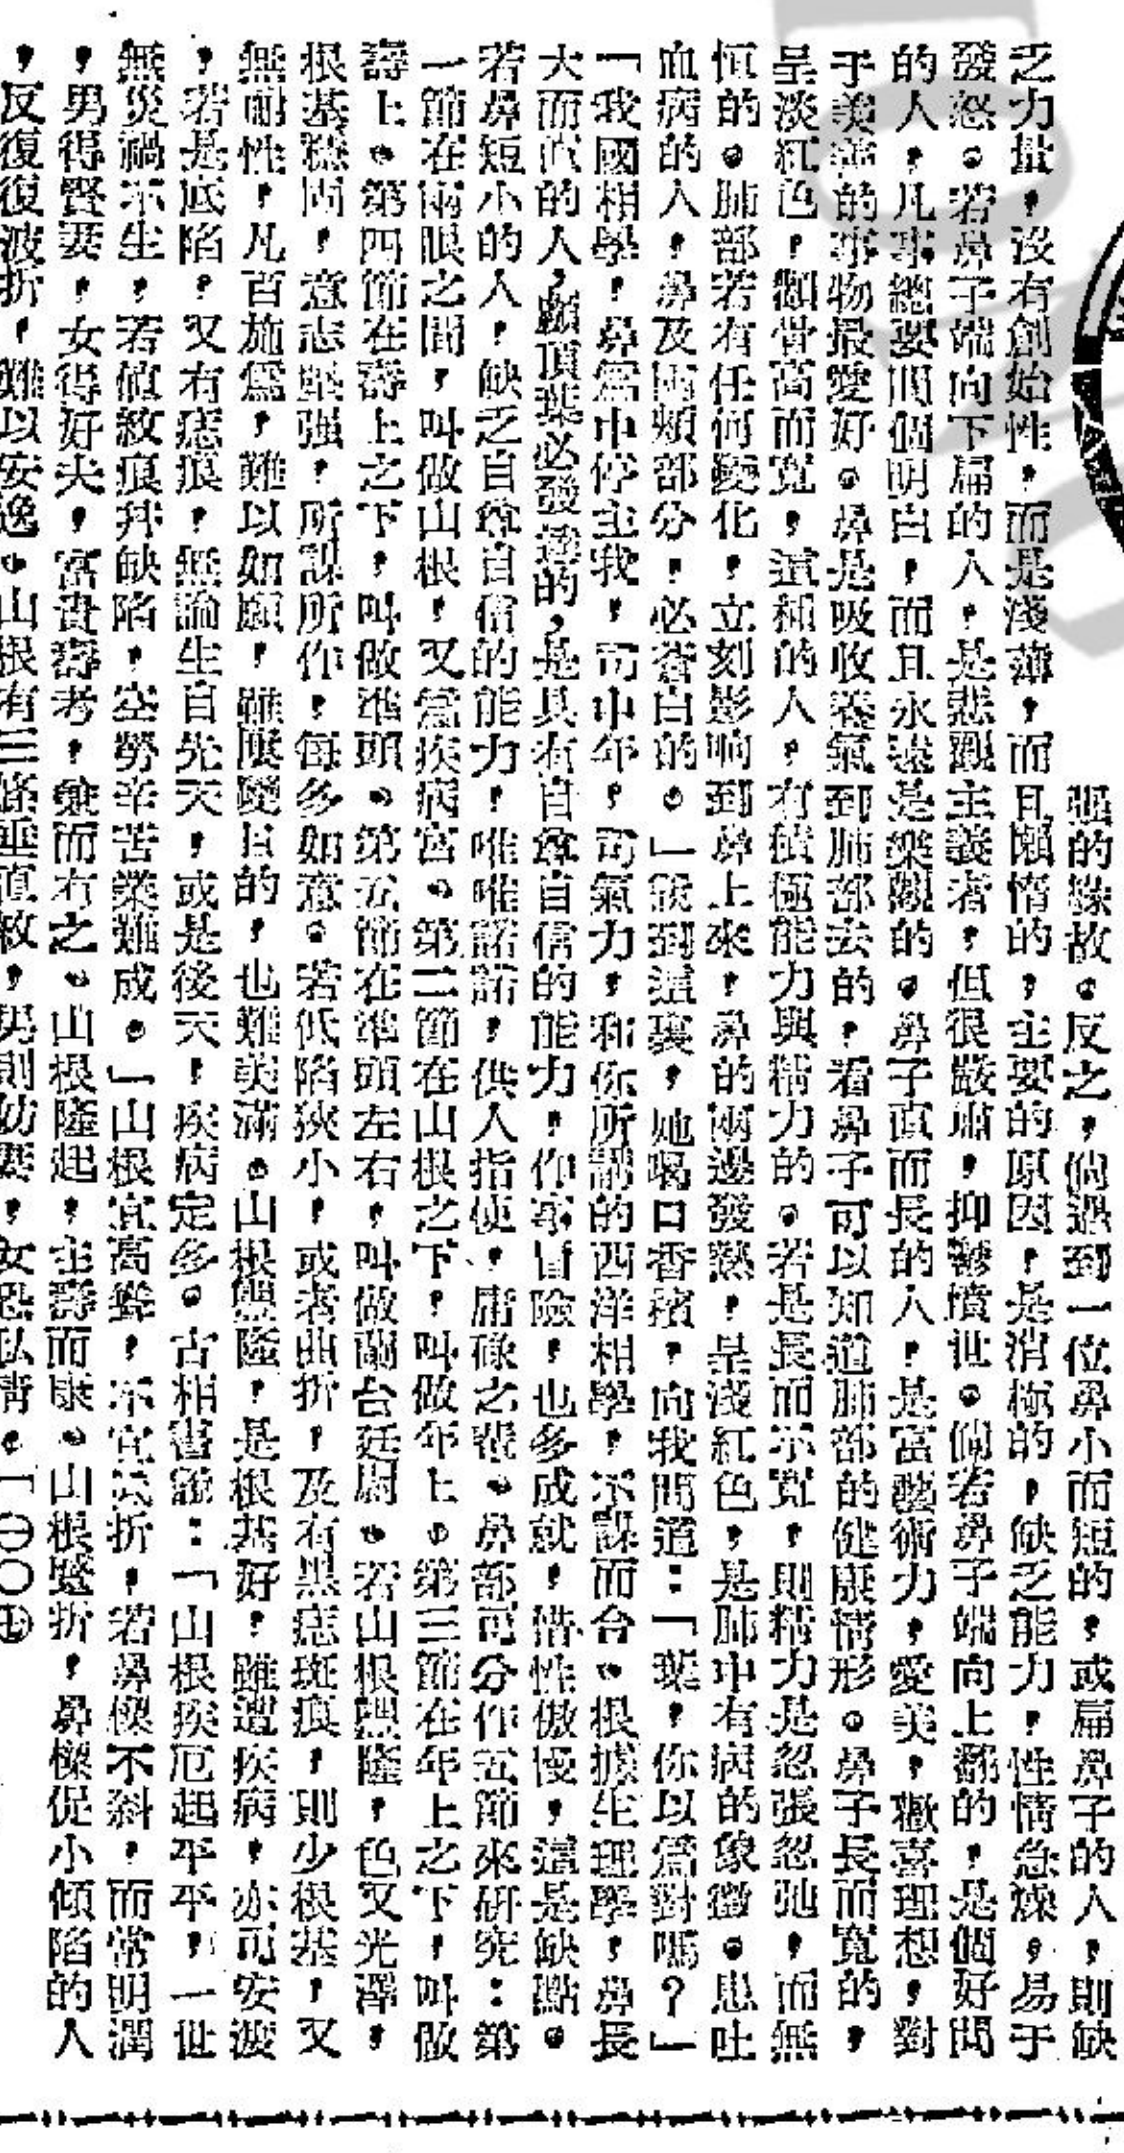 强的緣故。反之，倘遇到一位鼻小而短的，或扁鼻子的人，則缺
乏力量，沒有創始性，而是淺薄，而且懶惰的，主要的原因，是消極的，缺乏能力，性情急燥，易于
發怒。若鼻子端向下扁的人，是悲觀主義者，但很嚴肅，抑鬱憤世。倘若鼻子端向上翻的，是個好問
的人，凡事總要問個明白，而且永遠是樂觀的。鼻子直而長的人，是富藝術力，愛美，歡喜理想，對
于美善的事物最愛好。鼻是吸收養氣到肺部去的，看鼻子可以知道肺部的健康情形。鼻子長而寬的，
呈淡紅色，顴骨高而寬，這種的人，有積極能力與精力的。若是長而不寬，則精力是忽張忽弛，而無
恒的。肺部若有任何變化，立刻影响到鼻上來，鼻的兩邊發熱，呈淺紅色，是肺中有病的象徵。患吐
血病的人，鼻及兩頰部分，必蒼白的。」說到這裏，她喝口香檳，向我問道：「葉，你以爲對嗎？」
「我國相學，鼻爲中停主我，司中年，司氣力，和你所講的西洋相學，不謀而合。根據生理學，鼻長
大而敢的人，顱頂葉必發達的，是具有自尊自信的能力，作事冒險，也多成就，惜性傲慢，這是缺點。
若鼻短小的人，缺乏自尊自信的能力，唯唯諾諾，供人指使，庸碌之輩。鼻部可分作五節來研究：第
一節在兩眼之間，叫做山根，又爲疾病宮。第二節在山根之下，叫做年上。第三節在年上之下，叫做
壽上。第四節在壽上之下，叫做準頭。第五節在準頭左右，叫做蘭台廷尉。若山根豐隆，色又光澤，
根基穩固，意志堅强，所謀所作，每多如意。若低陷狹小，或者曲折，及有黑痣斑痕，則少根基，又
無耐性，凡百施爲，難以如願，雖屢變目的，也難美滿。山根豐隆，是根基好，雖遭疾病，亦可安波
，若是底陷，又有痣痕，無論生自先天，或是後天，疾病定多。古相書說：「山根疾厄起平平，一世
無災禍不生，若値紋痕幷缺陷，空勞辛苦業難成。」山根宜高聳，不宜尖折，若鼻樑不斜，而常明潤
，男得賢妻，女得好夫，富貴壽考，兼而有之。山根隆起，主壽而康。山根蹙折，鼻樑促小傾陷的人
，反復復波折，難以安逸。山根有三條垂直紋，男則妨妻，女恐私情。「㊀〇㊆